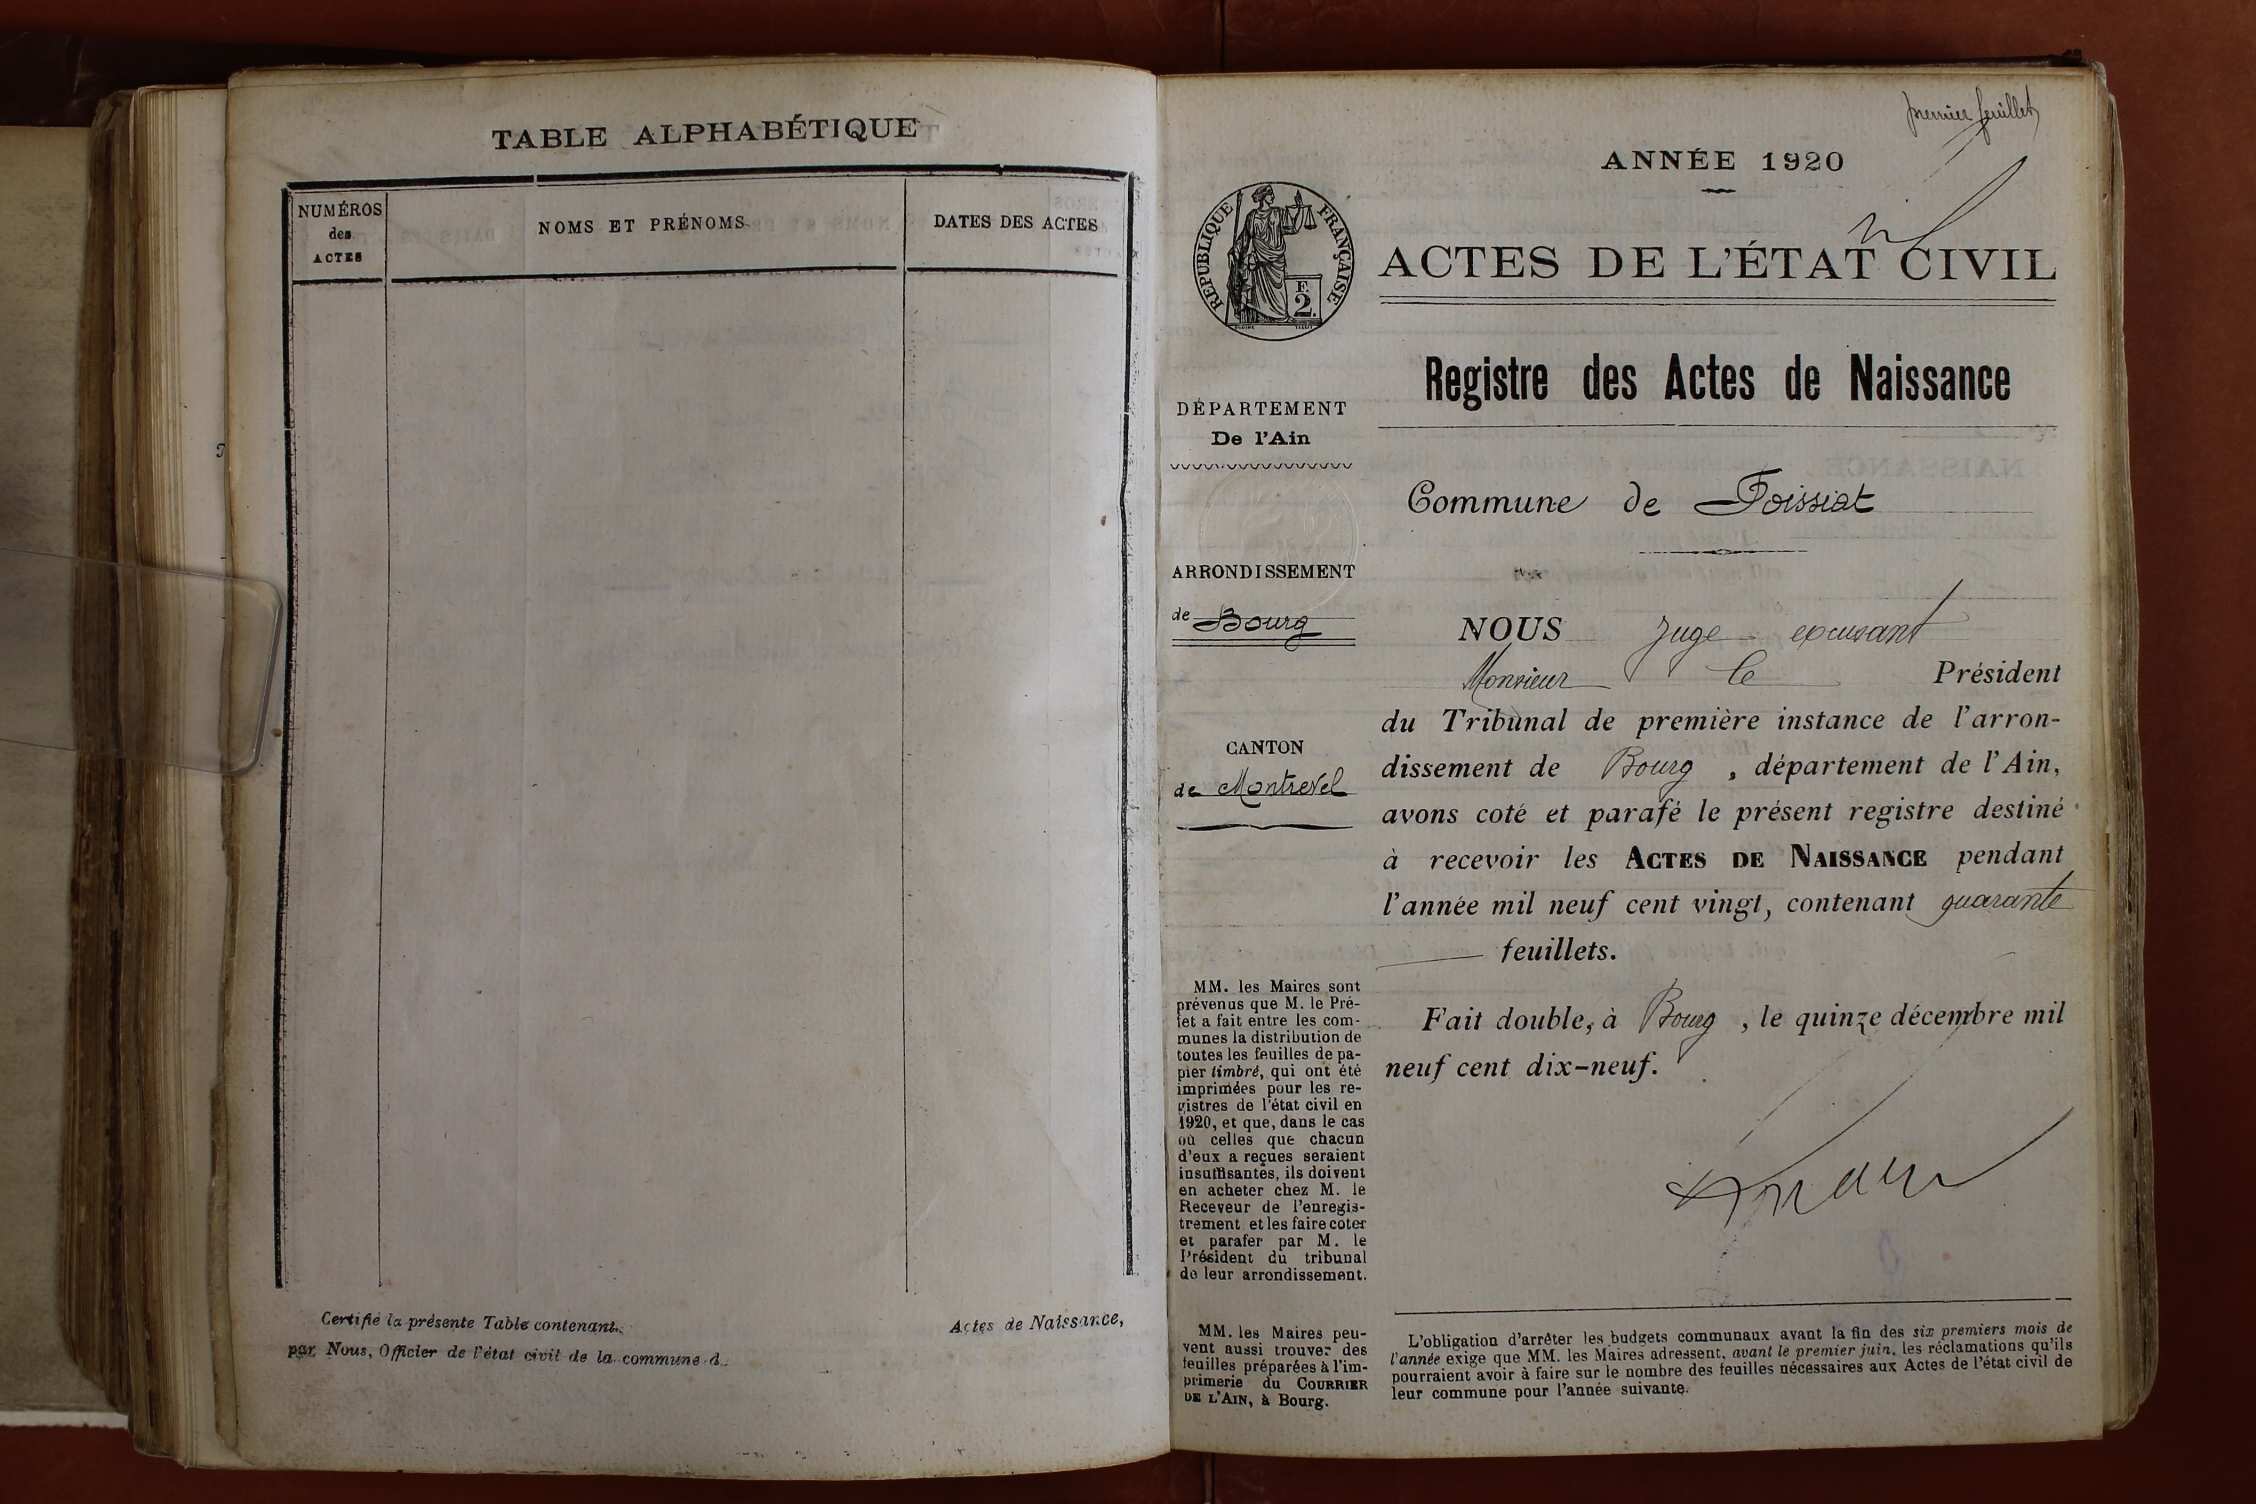 TABLE ALPHABÉTIQUE
NUMÉROS
des
ACTES
NOMS ET PRÉNOMS
DATES DES ACTES
Certifié la présente Table contenant
Actes de Naissance,
par Nous, Officier de l'état civil de la commune d
premier feuillet
ANNÉE 1920
RÉPUBLIQUE FRANÇAISE
F.
2.
ACTES DE L'ÉTAT CIVIL
Registre des Actes de Naissance
DÉPARTEMENT
De l'Ain
Commune de Foissiat
ARRONDISSEMENT
de Bourg
CANTON
de Montrevel
NOUS Juge excusant
Monsieur le Président
du Tribunal de première instance de l'arron-
dissement de Bourg, département de l'Ain,
avons coté et parafé le présent registre destiné
à recevoir les ACTES DE NAISSANCE pendant
l'année mil neuf cent vingt, contenant quarante
feuillets.
Fait double, à Bourg, le quinze décembre mil
neuf cent dix-neuf.
MM. les Maires sont
prévenus que M. le Pré-
fet a fait entre les com-
munes la distribution de
toutes les feuilles de pa-
pier timbré, qui ont été
imprimées pour les re-
gistres de l'état civil en
1920, et que, dans le cas
où celles que chacun
d'eux a reçues seraient
insuffisantes, ils doivent
en acheter chez M. le
Receveur de l'enregis-
trement et les faire coter
et parafer par M. le
Président du tribunal
de leur arrondissement.
MM. les Maires peu-
vent aussi trouver des
feuilles préparées à l'im-
primerie du COURRIER
DE L'AIN, à Bourg.
L'obligation d'arrêter les budgets communaux avant la fin des six premiers mois de
l'année exige que MM. les Maires adressent, avant le premier juin, les réclamations qu'ils
pourraient avoir à faire sur le nombre des feuilles nécessaires aux Actes de l'état civil de
leur commune pour l'année suivante.